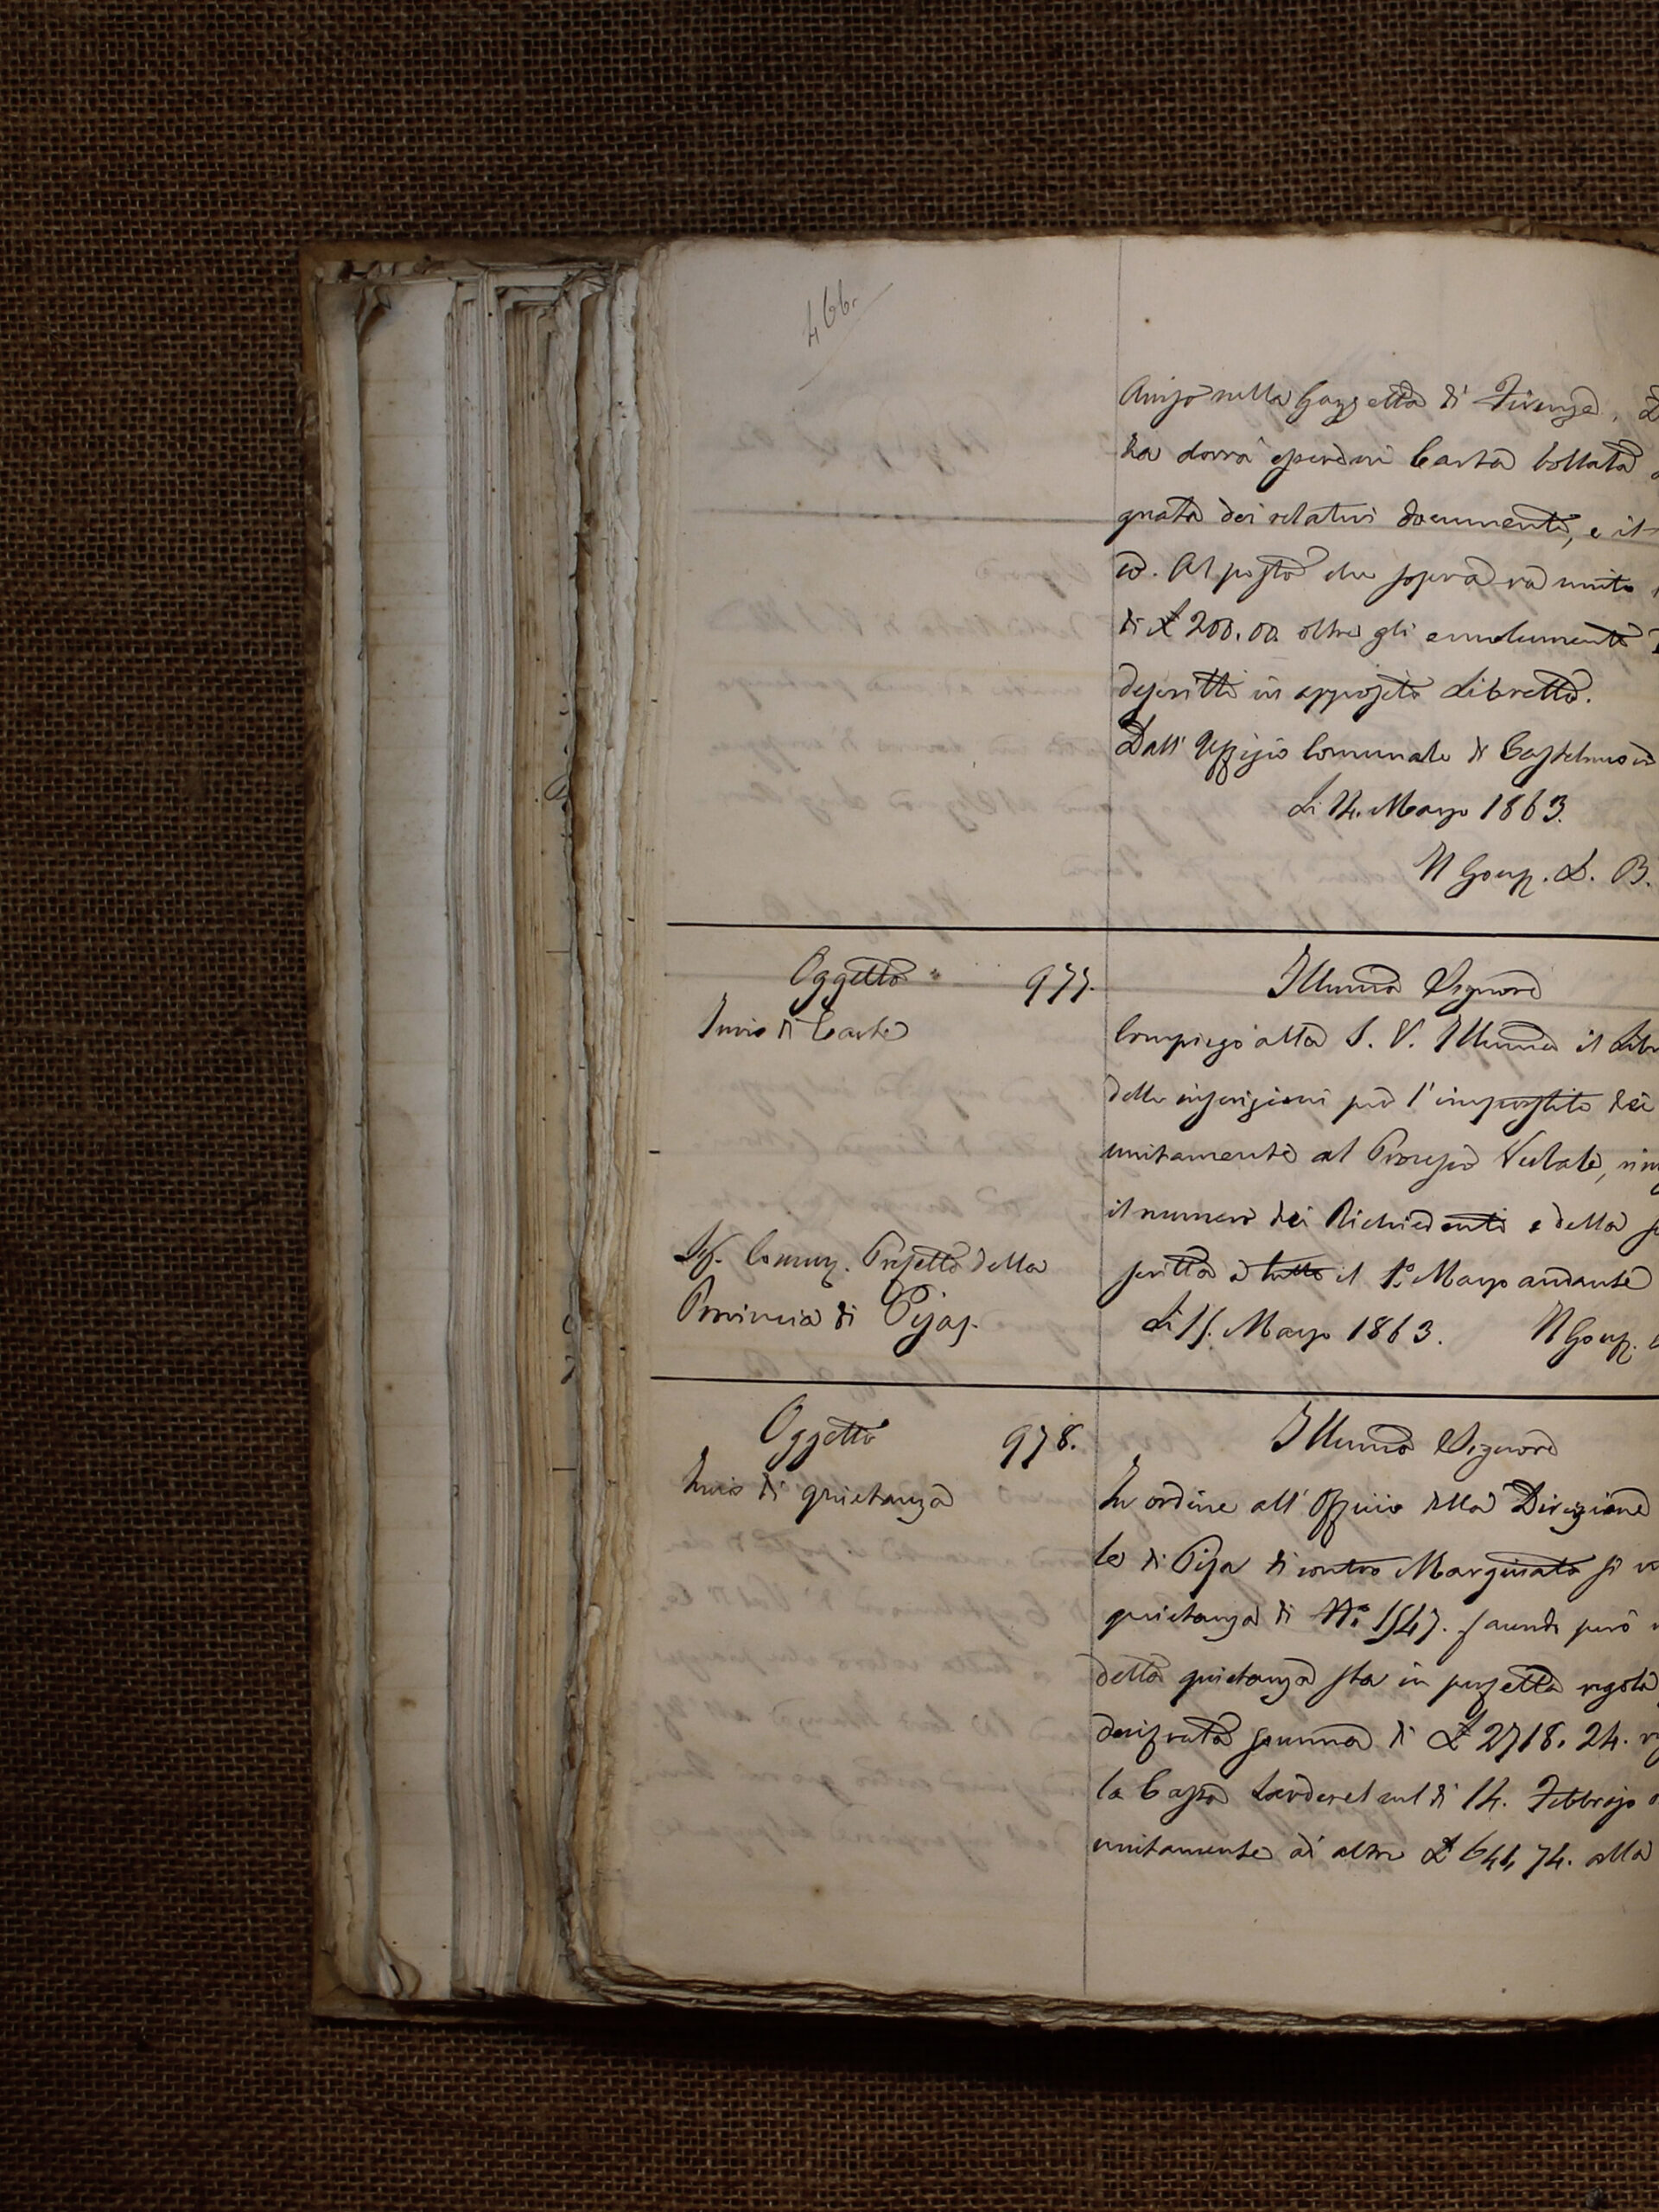 466.
Avviso nella Gazzetta di Firenze,
ta dovrà essere in Carta bollata
gnata dei relativi documenti, e il
io. Al posto che sopra va unito
di £ 200.00 oltre gli emolumenti
descritti in apposito Libretto.
Dall' Uffizio Comunale di Castelnuovo
Li 14. Marzo 1863.
Il Gonf. L. B.
Oggetto 977.
Invio di Carte
Sig. Comm. Prefetto della
Provincia di Pisa
Illumo Signore
Compiego alla S. V. Illuma il
delle inscrizioni per l' imprestito dei
unitamente al Processo Verbale,
il numero dei Richiedenti e della
scritta a tutto il 1.° Marzo andante
Li 15. Marzo 1863. Il Gonf.
Oggetto 978.
Invio di quietanza
Illumo Signore
In ordine all' Offizio della Direzione
le di Pisa di contro Marginato si
quietanza di N.° 1547. facendo però
detta quietanza sta in perfetta regola
decifrata somma di £ 2718. 24.
la Cassa Larderel nel di 14. Febbrajo
unitamente ad altre £ 641, 74. alla